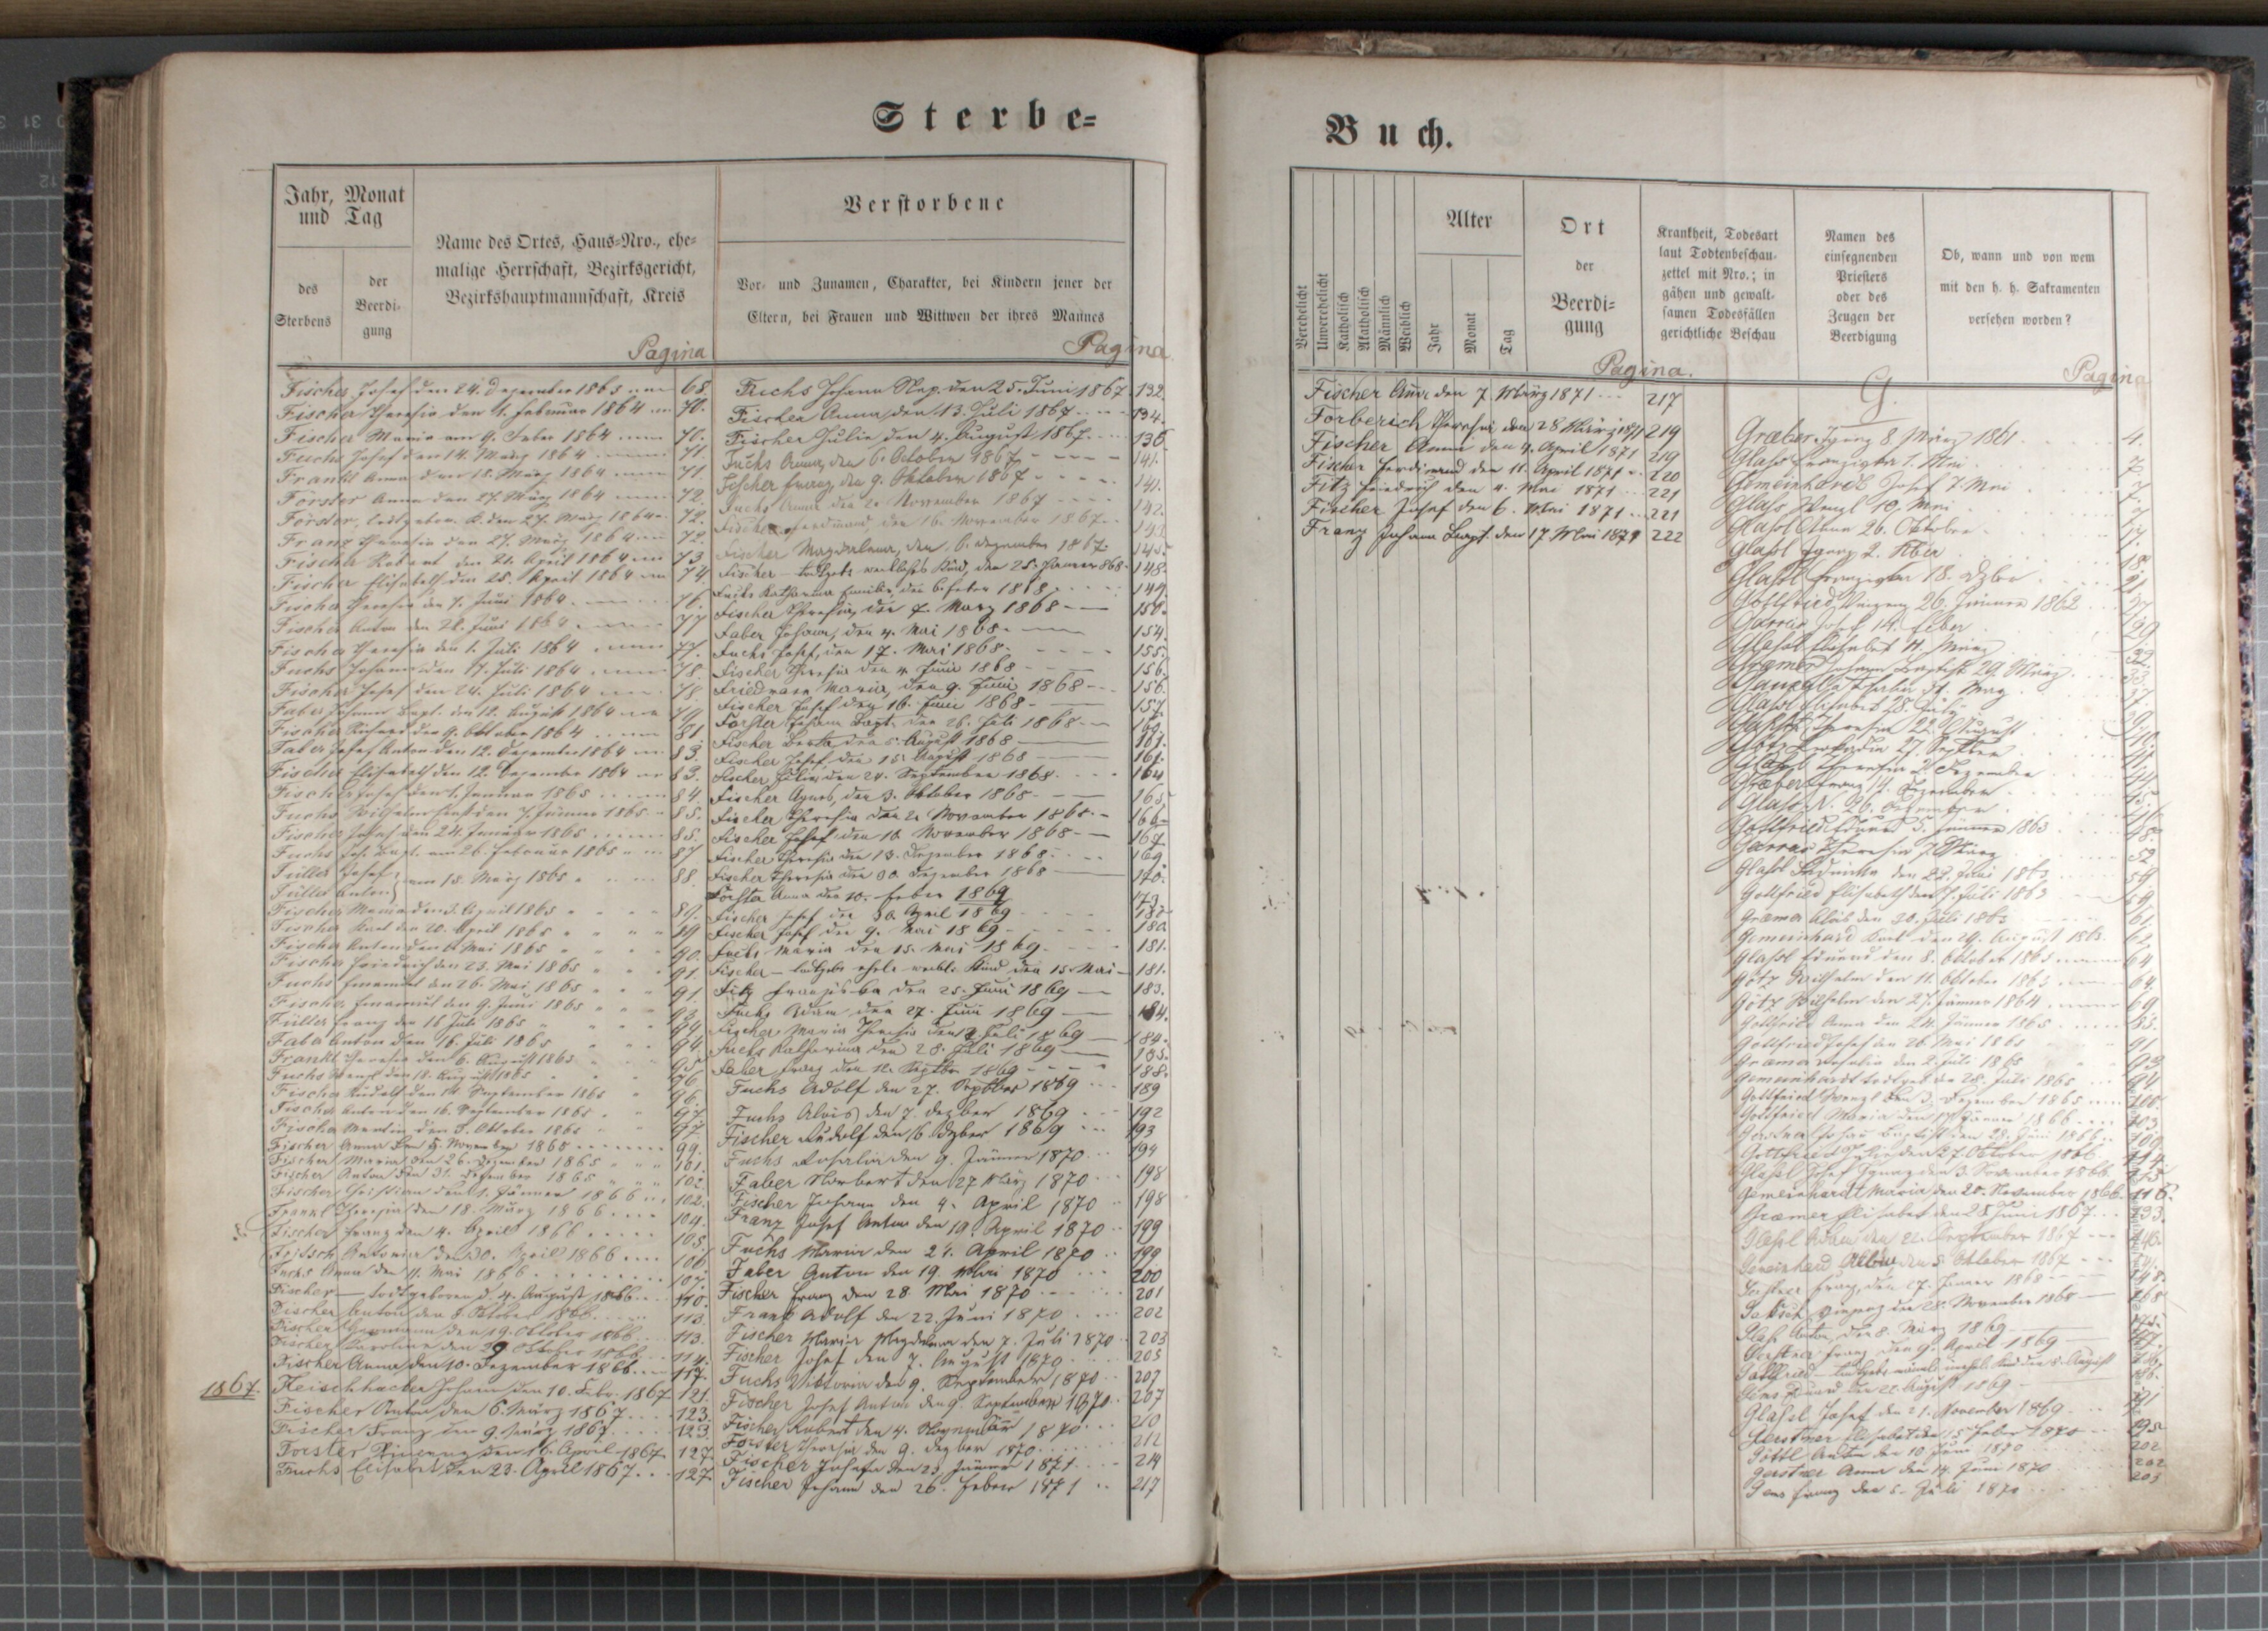 Sterbe-
Jahr, Monat und Tag
des Sterbens
der Beerdi-
gung
Name des Ortes, Haus-Nro., ehe-
malige Herrschaft, Bezirksgericht,
Bezirkshauptmannschaft, Kreis
Pagina
Verstorbene
Vor- und Zunamen, Charakter, bei Kindern jener der
Eltern, bei Frauen und Wittwen der ihres Mannes
Pagina
Fischer Josef den 24. Dezember 1863 68.
Fischer Theresia den 1. Februar 1864 70.
Fischer Maria am 9. Feber 1864 70.
Fuchs Josef den 14. März 1864 71
Frankl Anna den 18. März 1864 71.
Forster Anna den 27. März 1864 72.
Forster, todtgeboren. K. den 27. März 1864 72.
Franz Theresia den 27. März 1864 72.
Fischer Robert den 21. April 1864 73
Fischer Elisabeth den 25. April 1864 74
Fischer Theresia den 7. Juni 1864 76.
Fischer Anton den 28. Juni 1864 77
Fischer Theresia den 1. Juli 1864 77.
Fuchs Johann den 17. Juli 1864 78.
Fischer Josef den 24. Juli 1864 78
Faber Johann Bapt. den 12. August 1864 79
Fischer Richard den 9. Oktober 1864 81
Faber Josef Anton den 12. Dezember 1864 83.
Fischer Elisabeth den 12. Dezember 1864 83.
Fischer Josef den 1. Januar 1865 84.
Fuchs Wilhelm den 7. Jänner 1865 85.
Fischer Josef den 24. Januar 1865 85.
Fuchs Joh. Bapt. am 26. Februar 1865 87
Füller Josef
Füller Anton } am 18. März 1865 88.
Fischer Maria den 3. April 1865 89.
Fischer Karl den 20. April 1865
Fischer Anton den 6. Mai 1865 90.
Fischer Friedrich den 23. Mai 1865 91.
Fuchs Emanuel den 26. Mai 1865 91.
Fischer Emanuel den 9. Juni 1865
Füller Franz den 18 Juli 1865 94
Faber Anton den 16. Juli 1865 94
Frankl Theresia den 6. August 1865 95
Fuchs Wenzl den 18. August 1865 96
Fischer Rudolf den 14. September 1865 96.
Fischer Anton den 16. September 1865 97.
Fischer Martin den 8. Oktober 1865 97.
Fischer Anna den 5. November 1865 99.
Fischer Maria den 26. Dezember 1865 101.
Fischer Anton den 31. Dezember 1865 102
Fischer Christian den 1. Jänner 1866 102.
Frankl Theresia den 18. März 1866 104.
Fischer Franz den 4. April 1866 105.
Fritsch Antonia den 30. April 1866 106.
Fuchs Anna den 11. Mai 1866 107.
Fischer — todtgeboren d. 4. August 1866 110.
Fischer Anton den 8. Oktober 1866 113.
Fischer Hermann den 19. Oktober 1866 113.
Fischer Karoline den 29 Oktober 1866 114.
Fischer Anna den 10. Dezember 1866 117.
1867.
Fleischhacker Johann den 10. Febr. 1867 121.
Fischer Anton den 6. März 1867 123.
Fischer Franz den 9. März 1867 123.
Forster Vinzenz den 16. April 1867 127
Fuchs Elisabet den 23. April 1867 127.
Fuchs Johann Nep. den 25. Juni 1867 132.
Fischer Anna den 13. Juli 1867 134.
Fischer Julie den 4. August 1867 136
Fuchs Anna, den 6. October 1867 141.
Fischer Franz den 9. Oktober 1867 141.
Fuchs Anna den 2. November 1867 142.
Fischer Ferdinand, den 16. November 1867
Fischer Magdalena, den 6. Dezember 1867 145.
Fischer — todtgeb. weibliches Kind, den 25. Jänner 868 148.
Fuchs Katharina Emilie, den 6. Feber 1868 149.
Fischer Theresia, den 7. März 1868 150.
Faber Johann, den 4. Mai 1868 154.
Fuchs Josef, den 17. Mai 1868 155.
Fischer Theresia den 4. Juni 1868 156.
Friedmann Maria, den 9. Juni 1868 156.
Fischer Josef den 16. Juni 1868 157.
Forster Johann Bapt. den 26. Juli 1868 160.
Fischer Berta den 5. August 1868 161.
Fischer Josef, den 15. August 1868 161.
Fischer Julie, den 24. September 1868 164
Fischer Agnes, den 3. Oktober 1868 165
Fischer Theresia den 2. November 1868 166.
Fischer Josef den 16. November 1868 167
Fischer Theresia den 13. Dezember 1868 169.
Fischer Theresia den 30. Dezember 1868 170.
Forster Anna den 10. Feber 1869 173
Fischer Josef den 30. April 1869
Fischer Josef den 9. Mai 1869 180
Fuchs Maria den 15. Mai 1869 181.
Fischer — todtgeb. ehel. weibl. Kind den 15. Mai 181.
Fitz Franziska den 25. Juni 1869 183.
Fuchs Adam den 27. Juni 1869 184.
Fischer Maria Theresia den Juli 1869 184.
Fuchs Katharina den 28. Juli 1869 185.
Faber Franz den 12. Septbr 1869 188.
Fuchs Adolf den 27. Septber 1869 189
Fuchs Alois den 7. Dezber 1869 192
Fischer Rudolf den 16 Dezber 1869 193
Fuchs Rosalia den 9. Jänner 1870 194
Faber Norbert den 27 März 1870 198
Fischer Johann den 4. April 1870 198
Franz Josef Anton den 19. April 1870 199
Fuchs Maria den 21. April 1870 199
Faber Anton den 19. Mai 1870 200
Fischer Franz den 28. Mai 1870 201
Frank Adolf den 22. Juni 1870 202
Fischer Maria Magdalena den 7. Juli 1870 203
Fischer Josef den 7. August 1870 205
Fuchs Viktoria den 9. September 1870 207
Fischer Josef Anton den 9. September 1870 207
Fischer Robert den 4. November 1870 210
Forster Theresia den 9. Dezber 1870 212
Fischer Josefa den 23 Jänner 1871 214
Fischer Johann den 26. Feber 1871 217
Buch.
Verehelicht
Unverehelicht
Katholisch
Akatholisch
Männlich
Weiblich
Alter
Jahr
Monat
Tag
Ort
der
Beerdi-
gung
Krankheit, Todesart
laut Todtenbeschau-
zettel mit Nro.; in
gähen und gewalt-
samen Todesfällen
gerichtliche Beschau
Namen des
einsegnenden
Priesters
oder des
Zeugen der
Beerdigung
Ob, wann und von wem
mit den h. h. Sakramenten
versehen worden?
Pagina.
Pagina
Fischer Anna den 7. März 1871 217
Forberich Theresia den 28 März 1871 219
Fischer Anna den 4. April 1871 219
Fischer Ferdinand den 11. April 1871 220
Fitz Friedrich den 4. Mai 1871 221
Fischer Josef den 6. Mai 1871 221
Franz Johann Bapt. den 17. Mai 1871 222
G.
Græber Ignaz 8. März 1861 4.
Glass Franziska 1. Mai 7
Gemeinhardt Josef 7. Mai 7.
Glass Wenzl 10. Mai
Glassl Anna 26. October 17.
Glassl Ignaz 2. 18.
Glassl Franziska 18. Dzbr 21
Gottfried Vinzenz 26. Jänner 1862
Josef 14. Feber
Glassl Elisabet 11. März
Græmer Johann Baptist 29. März
Glassl Elisabet 28. July
Theresia 22. August
27. Septber
Theresia 2. Dezember
Græber Franz 14. Dezember
Glass N. 16. Dezember
Gottfried Eduard 3. Jänner 1863 48.
Theresia 7. März 52
Glassl Ludmila den 22. Juni 1863 59
Gottfried Elisabeth den 7. Juli 1863
Græmer Alois den 20. Juli 1863 61
Gemeinhard Karl den 29. August 1863 62.
Glassl Eduard den 8. Oktober 1863 64
Götz Wilhelm den 11. Oktober 1863 64.
Götz Wilhelm den 27. Jänner 1864 69
Gottfried Anna den 24. Jänner 1865 85.
Gottfried Josef den 26. Mai 1865 91
Græmer Rosalia den 2. Juli 1865 93
Gemeinhardt todtgeb. den 28. Juli 1865 94
Gottfried Wenzl den 3. Dezember 1865 100.
Gottfried Maria den 17. Jänner 1866 103
Gerstner Johann Baptist den 28. Juni 1866 109.
Gottfried den 27. Oktober 1866 114
Glassl Josef Ignaz den 3. November 1866
Gemeinhardt Maria den 20. November 1866 116.
Græmer Elisabet den 28 Juni 1867 133.
Glassl den 21. September 1867 140.
Gemeinhard den 5. Oktober 1867
Gerstner Franz, den 27. Jänner 1868 148.
Vinzenz den 28. November 1868 168
Glass Anton, den 8. März 1869 175.
Gerstner Franz den 9. April 1869
Gottfried todtgeb. Kind den 5. August
Eduard den 22. August 1869
Glassl Josef den 21. November 1869 191
Gerstner Elisabet den 15 Feber 1870 195
Göttl Anton den 10 Juni 1870 202
Gerstner Anna den 14. Juni 1870 202
Franz den 5. Juli 1870 203